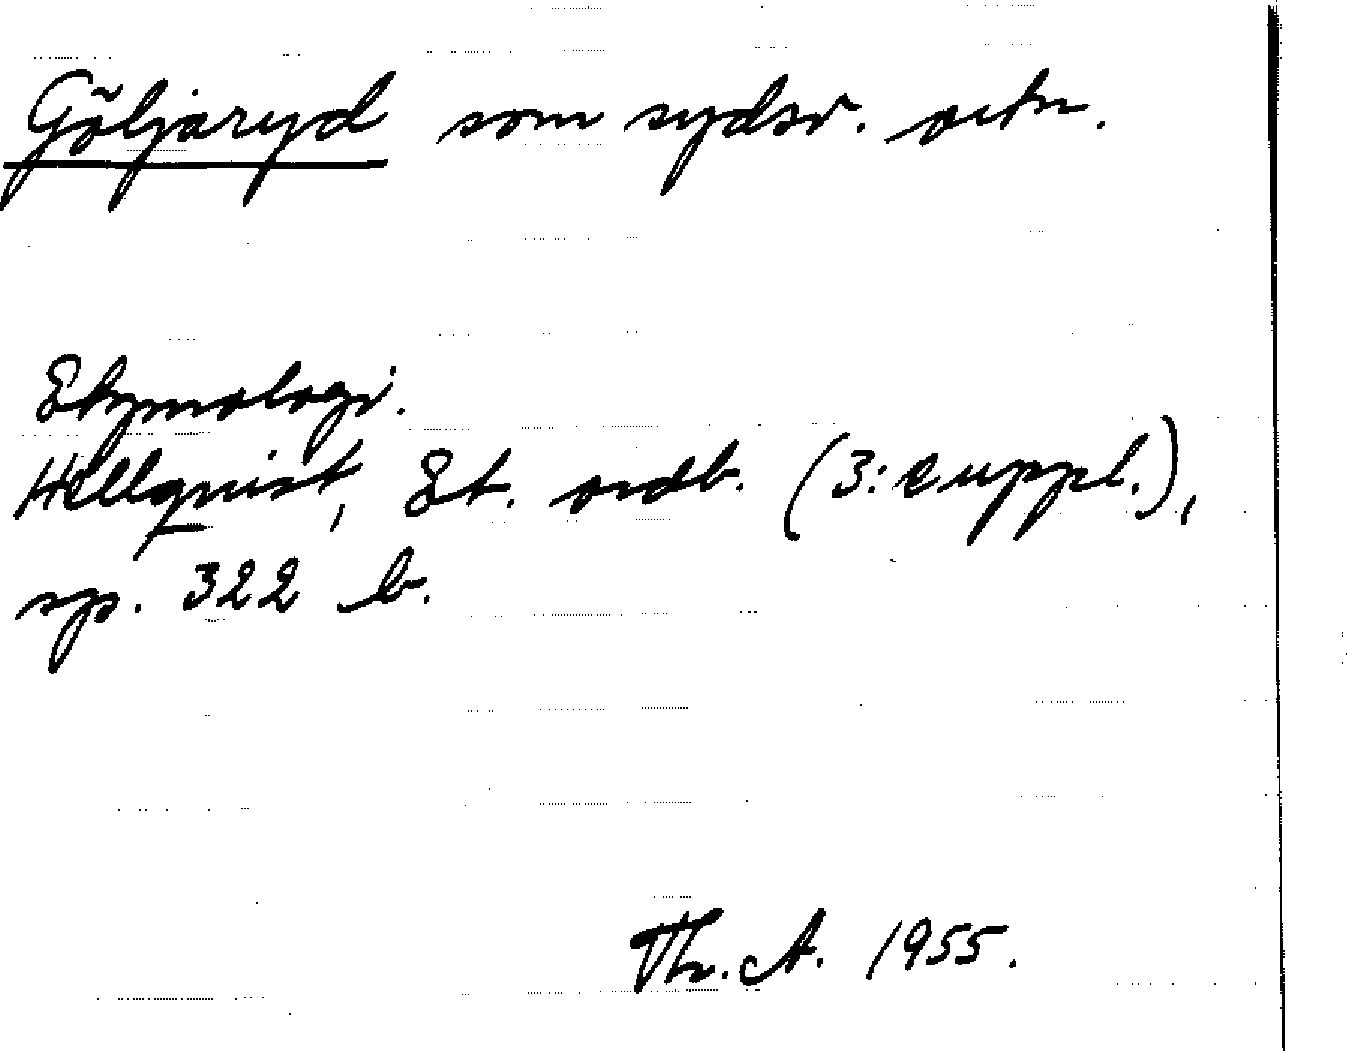 Göljaryd som sydsv. ortn.
Etymologi.
Hellquist, Et. ordb. (3: e uppl.),
sp. 322 b.
Th. A. 1955.